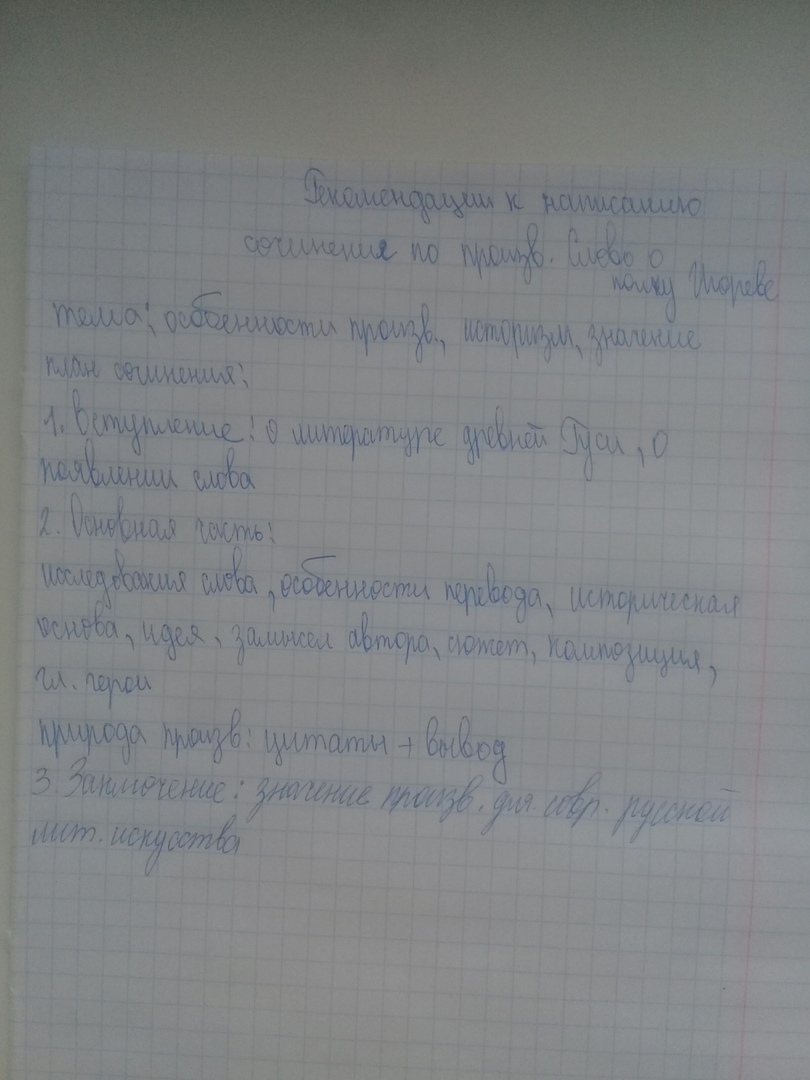 Рекомендации к написанию
сочинения по произв. Слово о
полку Игореве
тема: особенности произв., историзм, значение
план сочинения:
1. Вступление: о литературе древней Руси, о
появлении слова
2. Основная часть:
исследования слова, особенности перевода, историческая
основа, идея, замысел автора, сюжет, композиция,
гл. герои
природа произв: цитаты + вывод
3. Заключение: значение произв. для совр. русской
лит. искусства